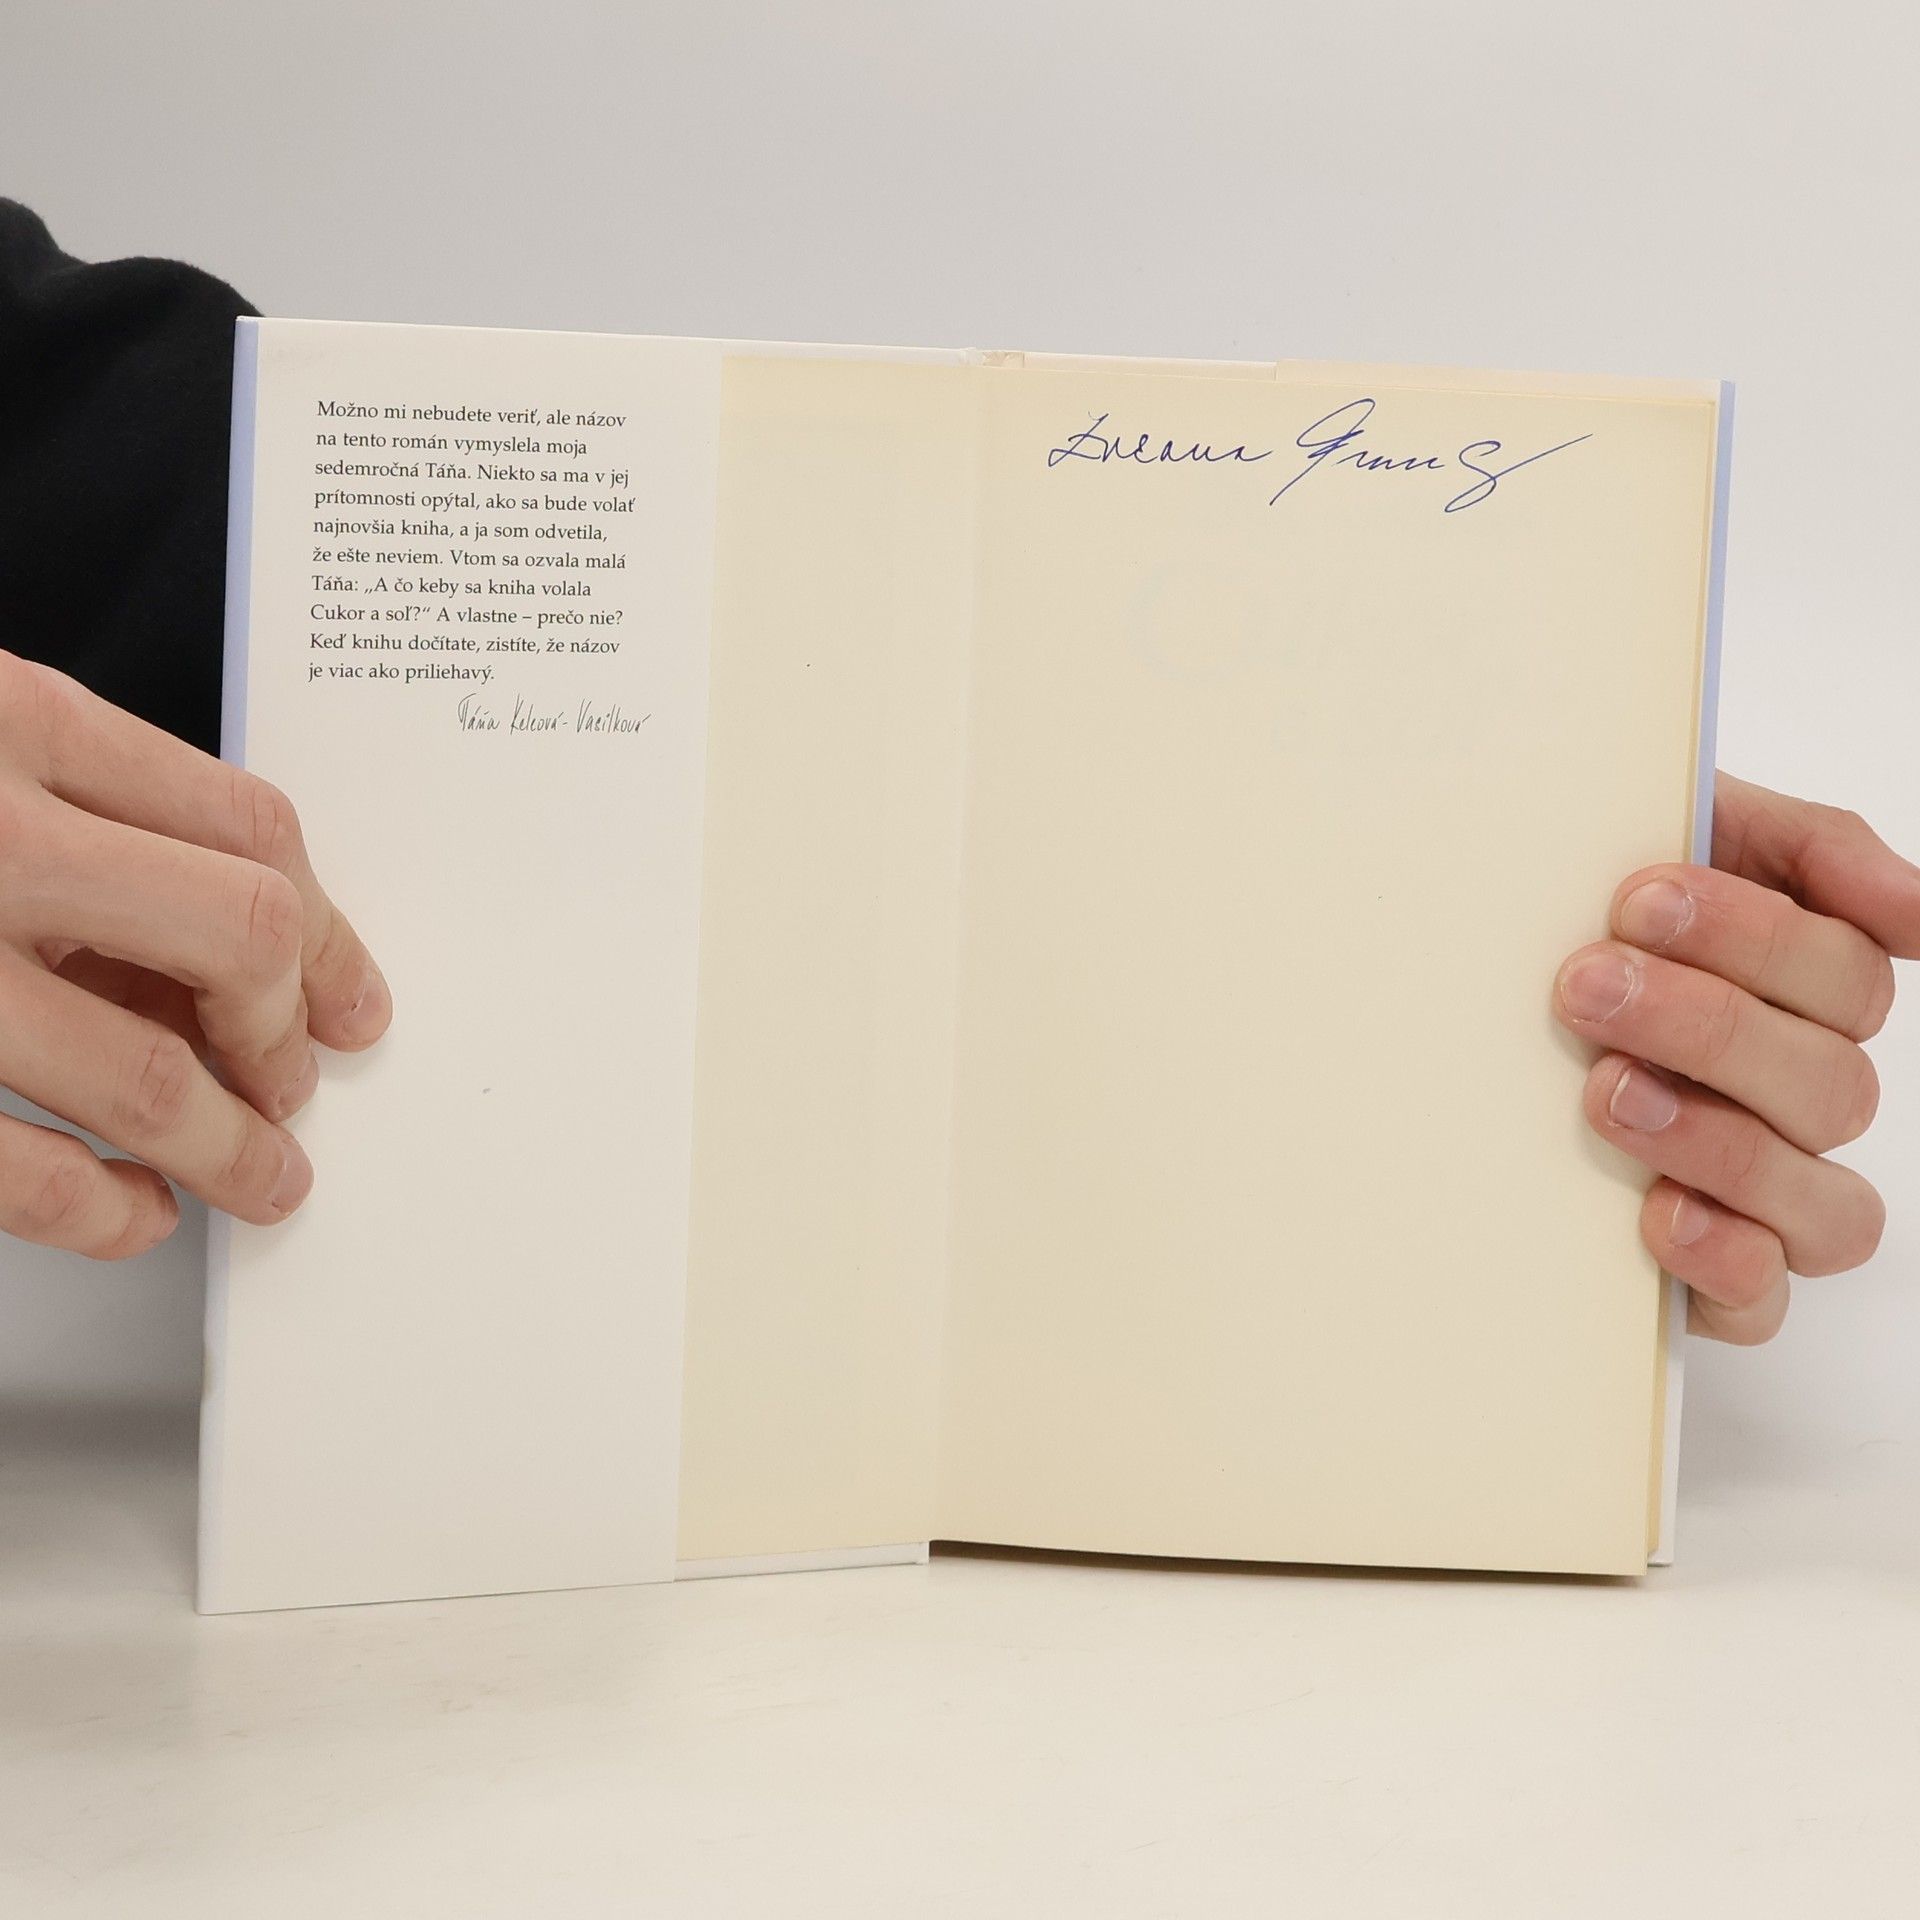 Možno mi nebudete veriť, ale názov
na tento román vymyslela moja
sedemročná Táňa. Niekto sa ma v jej
prítomnosti opýtal, ako sa bude volať
najnovšia kniha, a ja som odvetila,
že ešte neviem. Vtom sa ozvala malá
Táňa: „A čo keby sa kniha volala
Cukor a soľ?“ A vlastne – prečo nie?
Keď knihu dočítate, zistíte, že názov
je viac ako priliehavý.
Táňa Keleová-Vasilková